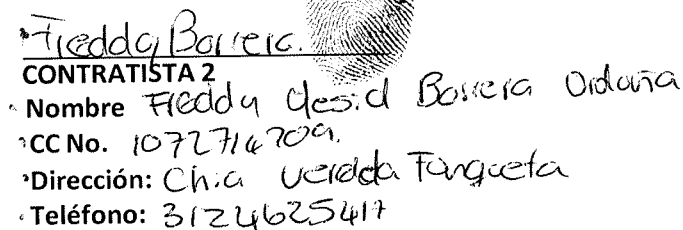 Freddy Barrera.
CONTRATISTA 2
Nombre Freddy Yesid Barrera Orduña
CC No. 1072714709.
Dirección: Chia Vereda Fonqueta
Teléfono: 3124625417